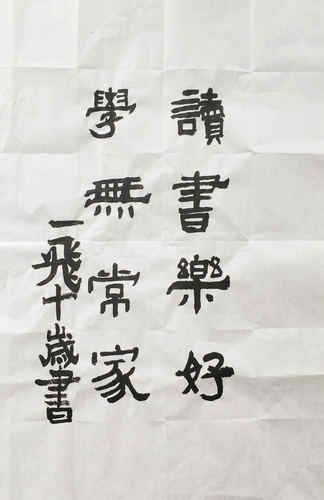 讀書樂好
學無常家
一飛十歲書